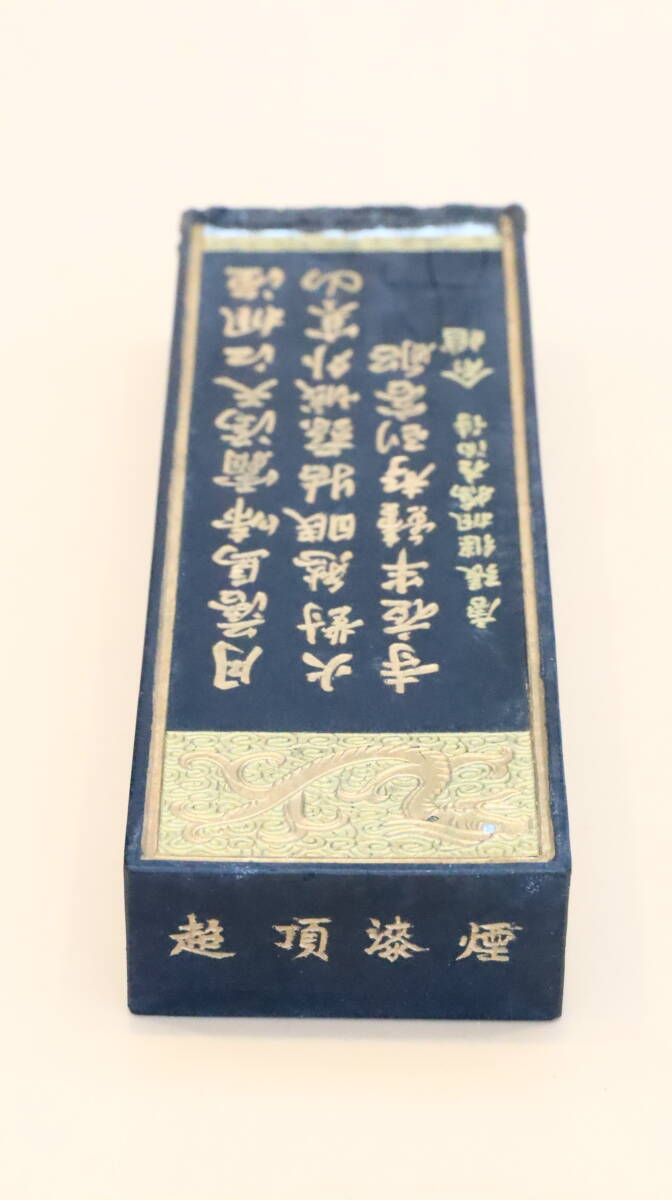 月落烏啼霜滿天江楓漁
火對愁眠姑蘇城外寒山
寺夜半鐘聲到客船
唐張繼楓橋夜泊詩 俞樾
超頂漆煙